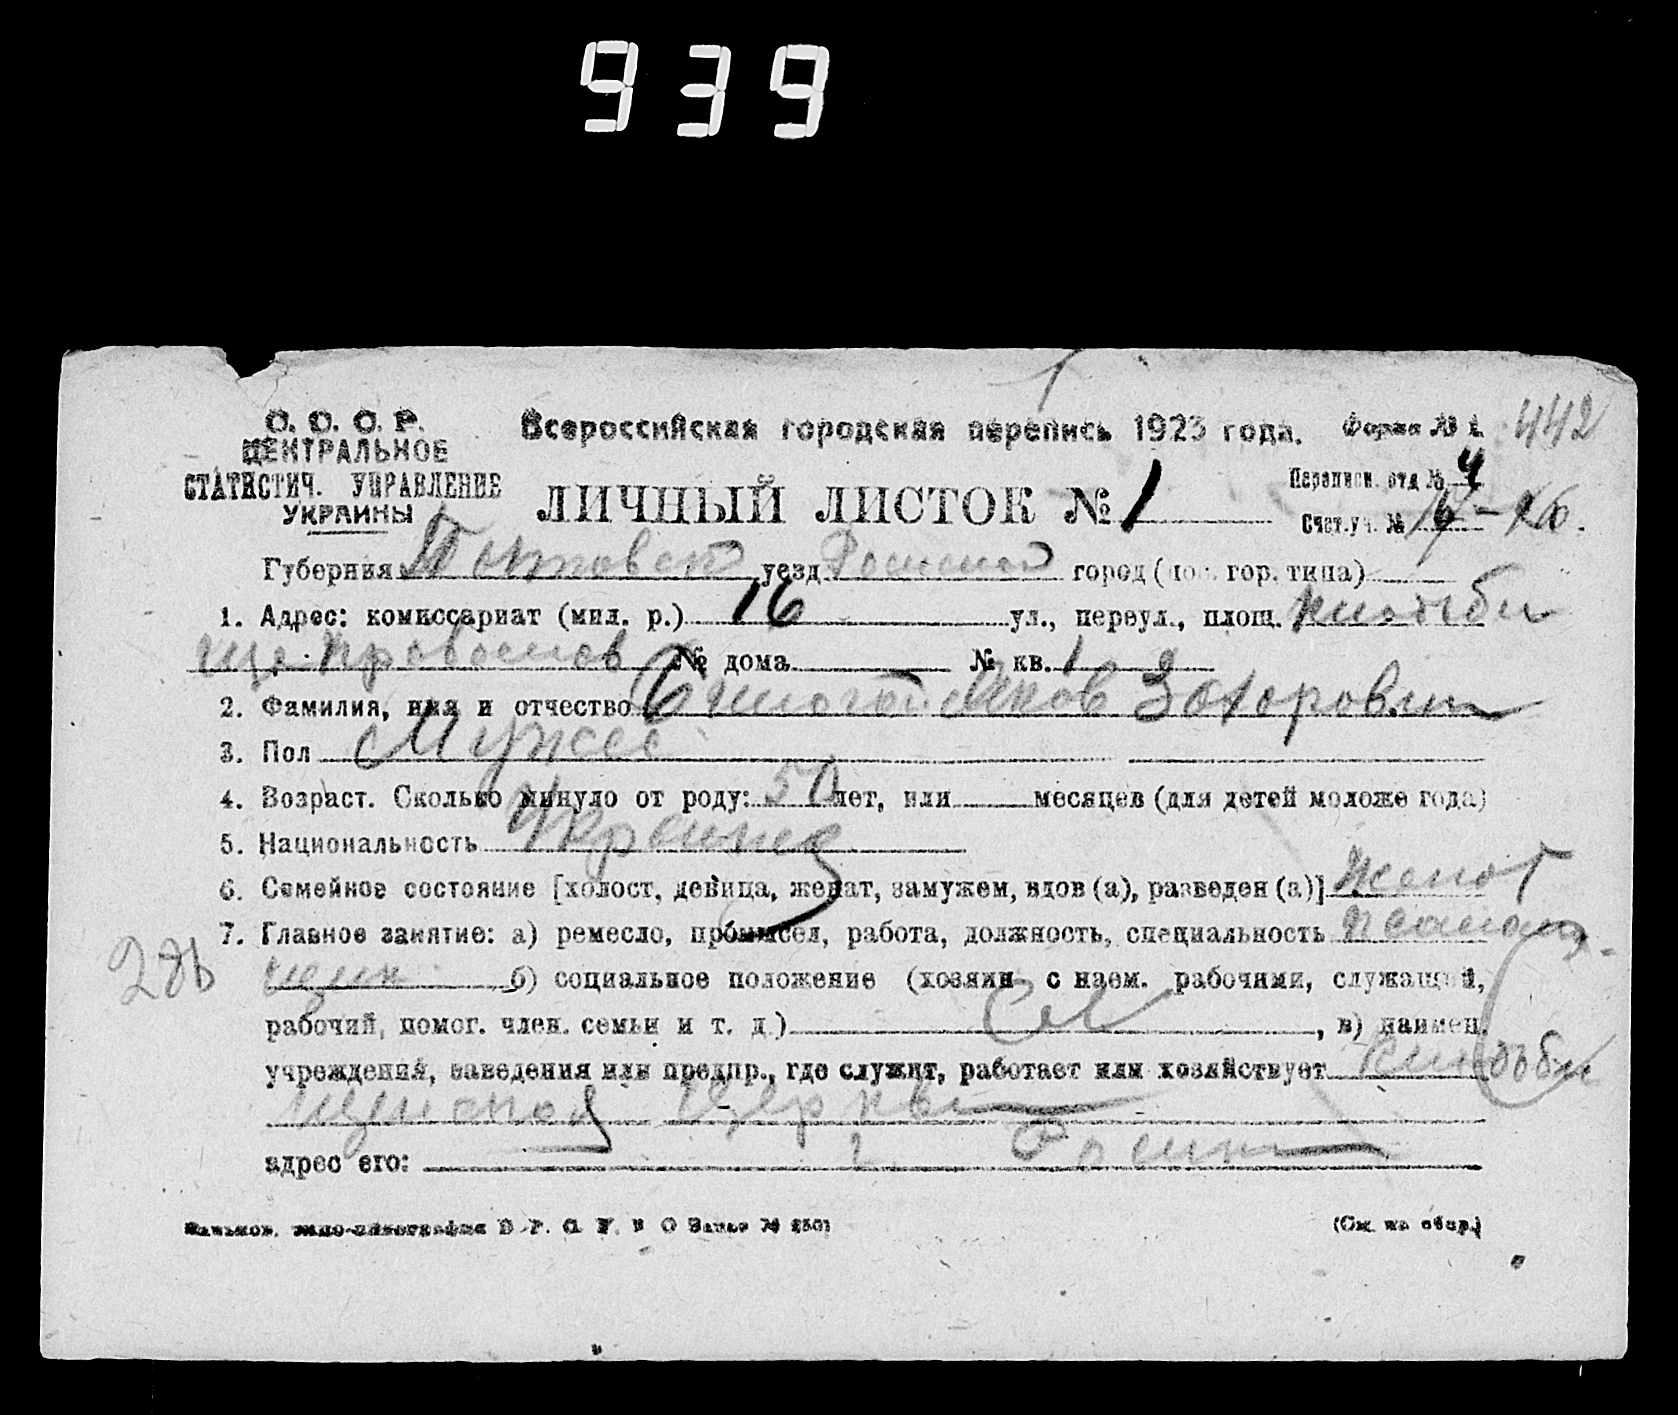 939
С. С. С. Р.
ЦЕНТРАЛЬНОЕ
СТАТИСТИЧ. УПРАВЛЕНИЕ
УКРАИНЫ
Всероссийская городская перепись 1923 года. Форма № 1. 442
ЛИЧНЫЙ ЛИСТОК № 1
Переписн. отд № 4
Счет.уч. №
Губерния уезд город (пос. гор. типа)
1. Адрес: комиссариат (мил. р.) 16 ул., переул., площ. кладби
ще Православ № дома № кв. 1
2. Фамилия, имя и отчество Яков Захорович
3. Пол Мужес
4. Возраст. Сколько минуло от роду: 50 лет, или месяцев (для детей моложе года)
5. Национальность Украинец
6. Семейное состояние [холост, девица, женат, замужем, вдов (а), разведен (а)] женат
7. Главное занятие: а) ремесло, промысел, работа, должность, специальность псалом
щик б) социальное положение (хозяин с наем. рабочими, служащий,
рабочий, помог. член. семьи и т. д.) Сл , в) наимен.
учреждения, заведения или предпр., где служит, работает или хозяйствует Кладби
щенской Церкви
адрес его: г. Ромны
(См. на обор.)
28в